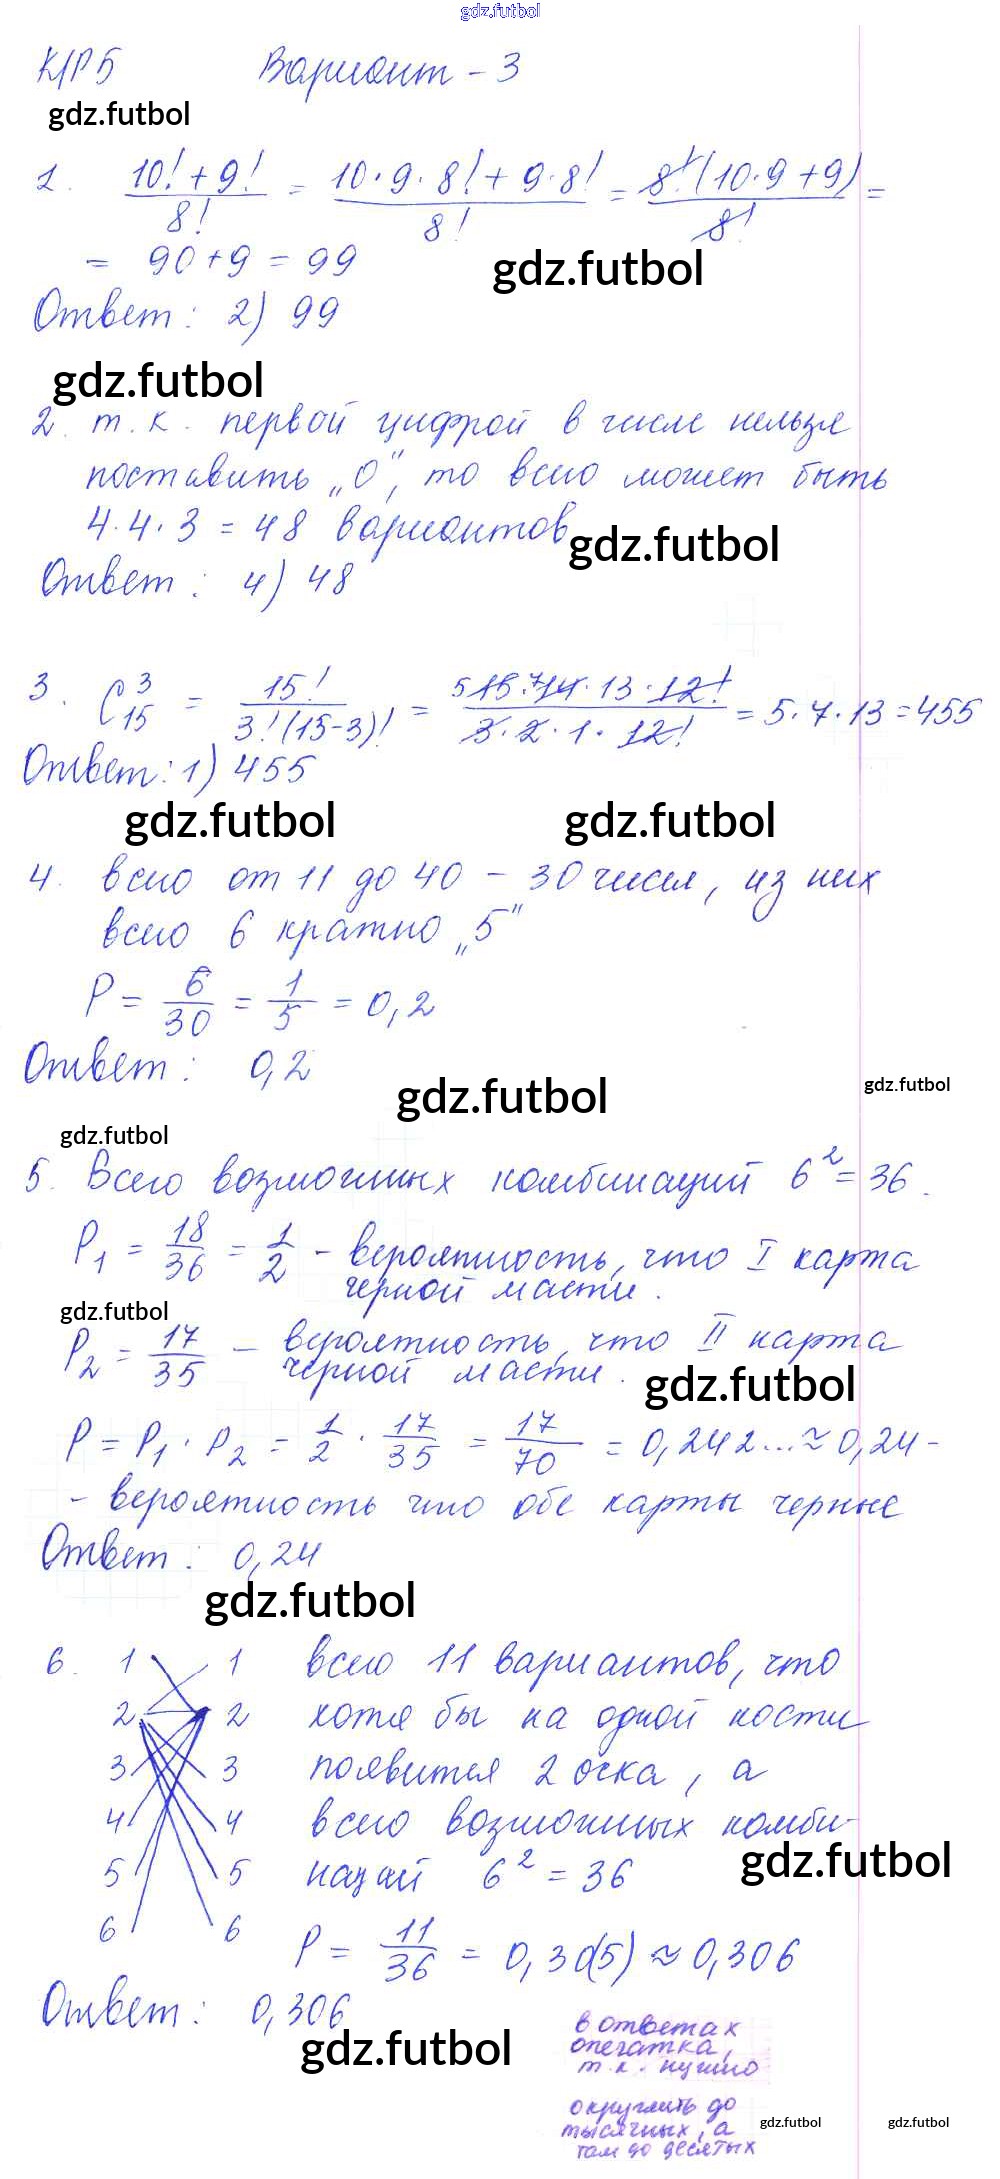 gdz.futbol
К/Р 5 Вариант - 3
gdz.futbol
1. (10! + 9!)/8! = (10·9·8! + 9·8!)/8! = 8!(10·9+9)/8! =
= 90+9 = 99
gdz.futbol
Ответ: 2) 99
gdz.futbol
2. т.к. первой цифрой в числе нельзя
поставить „0", то всего может быть
4·4·3 = 48 вариантов
gdz.futbol
Ответ: 4) 48
3. C³₁₅ = 15!/(3!(15-3)!) = (⁵15·⁷14·13·12!)/(3·2·1·12!) = 5·7·13=455
Ответ: 1) 455
gdz.futbol gdz.futbol
4. всего от 11 до 40 - 30 чисел, из них
всего 6 кратно „5"
P = 6/30 = 1/5 = 0,2
Ответ: 0,2
gdz.futbol gdz.futbol
gdz.futbol
5. Всего возможных комбинаций 6² = 36.
P₁ = 18/36 = 1/2 - вероятность, что I карта
черной масти.
gdz.futbol
P₂ = 17/35 - вероятность, что II карта
черной масти.
gdz.futbol
P = P₁ · P₂ = 1/2 · 17/35 = 17/70 = 0,242...≈ 0,24 -
- вероятность что обе карты черные
Ответ: 0,24
gdz.futbol
6. 1 1 всего 11 вариантов, что
2 2 хотя бы на одной кости
3 3 появится 2 очка, а
4 4 всего возможных комби-
gdz.futbol
5 5 наций 6² = 36
6 6 P = 11/36 = 0,30(5) ≈ 0,306
Ответ: 0,306
gdz.futbol
в ответах
опечатка,
т.к. нужно
округлить до
тысячных, а
там до десятых
gdz.futbol gdz.futbol